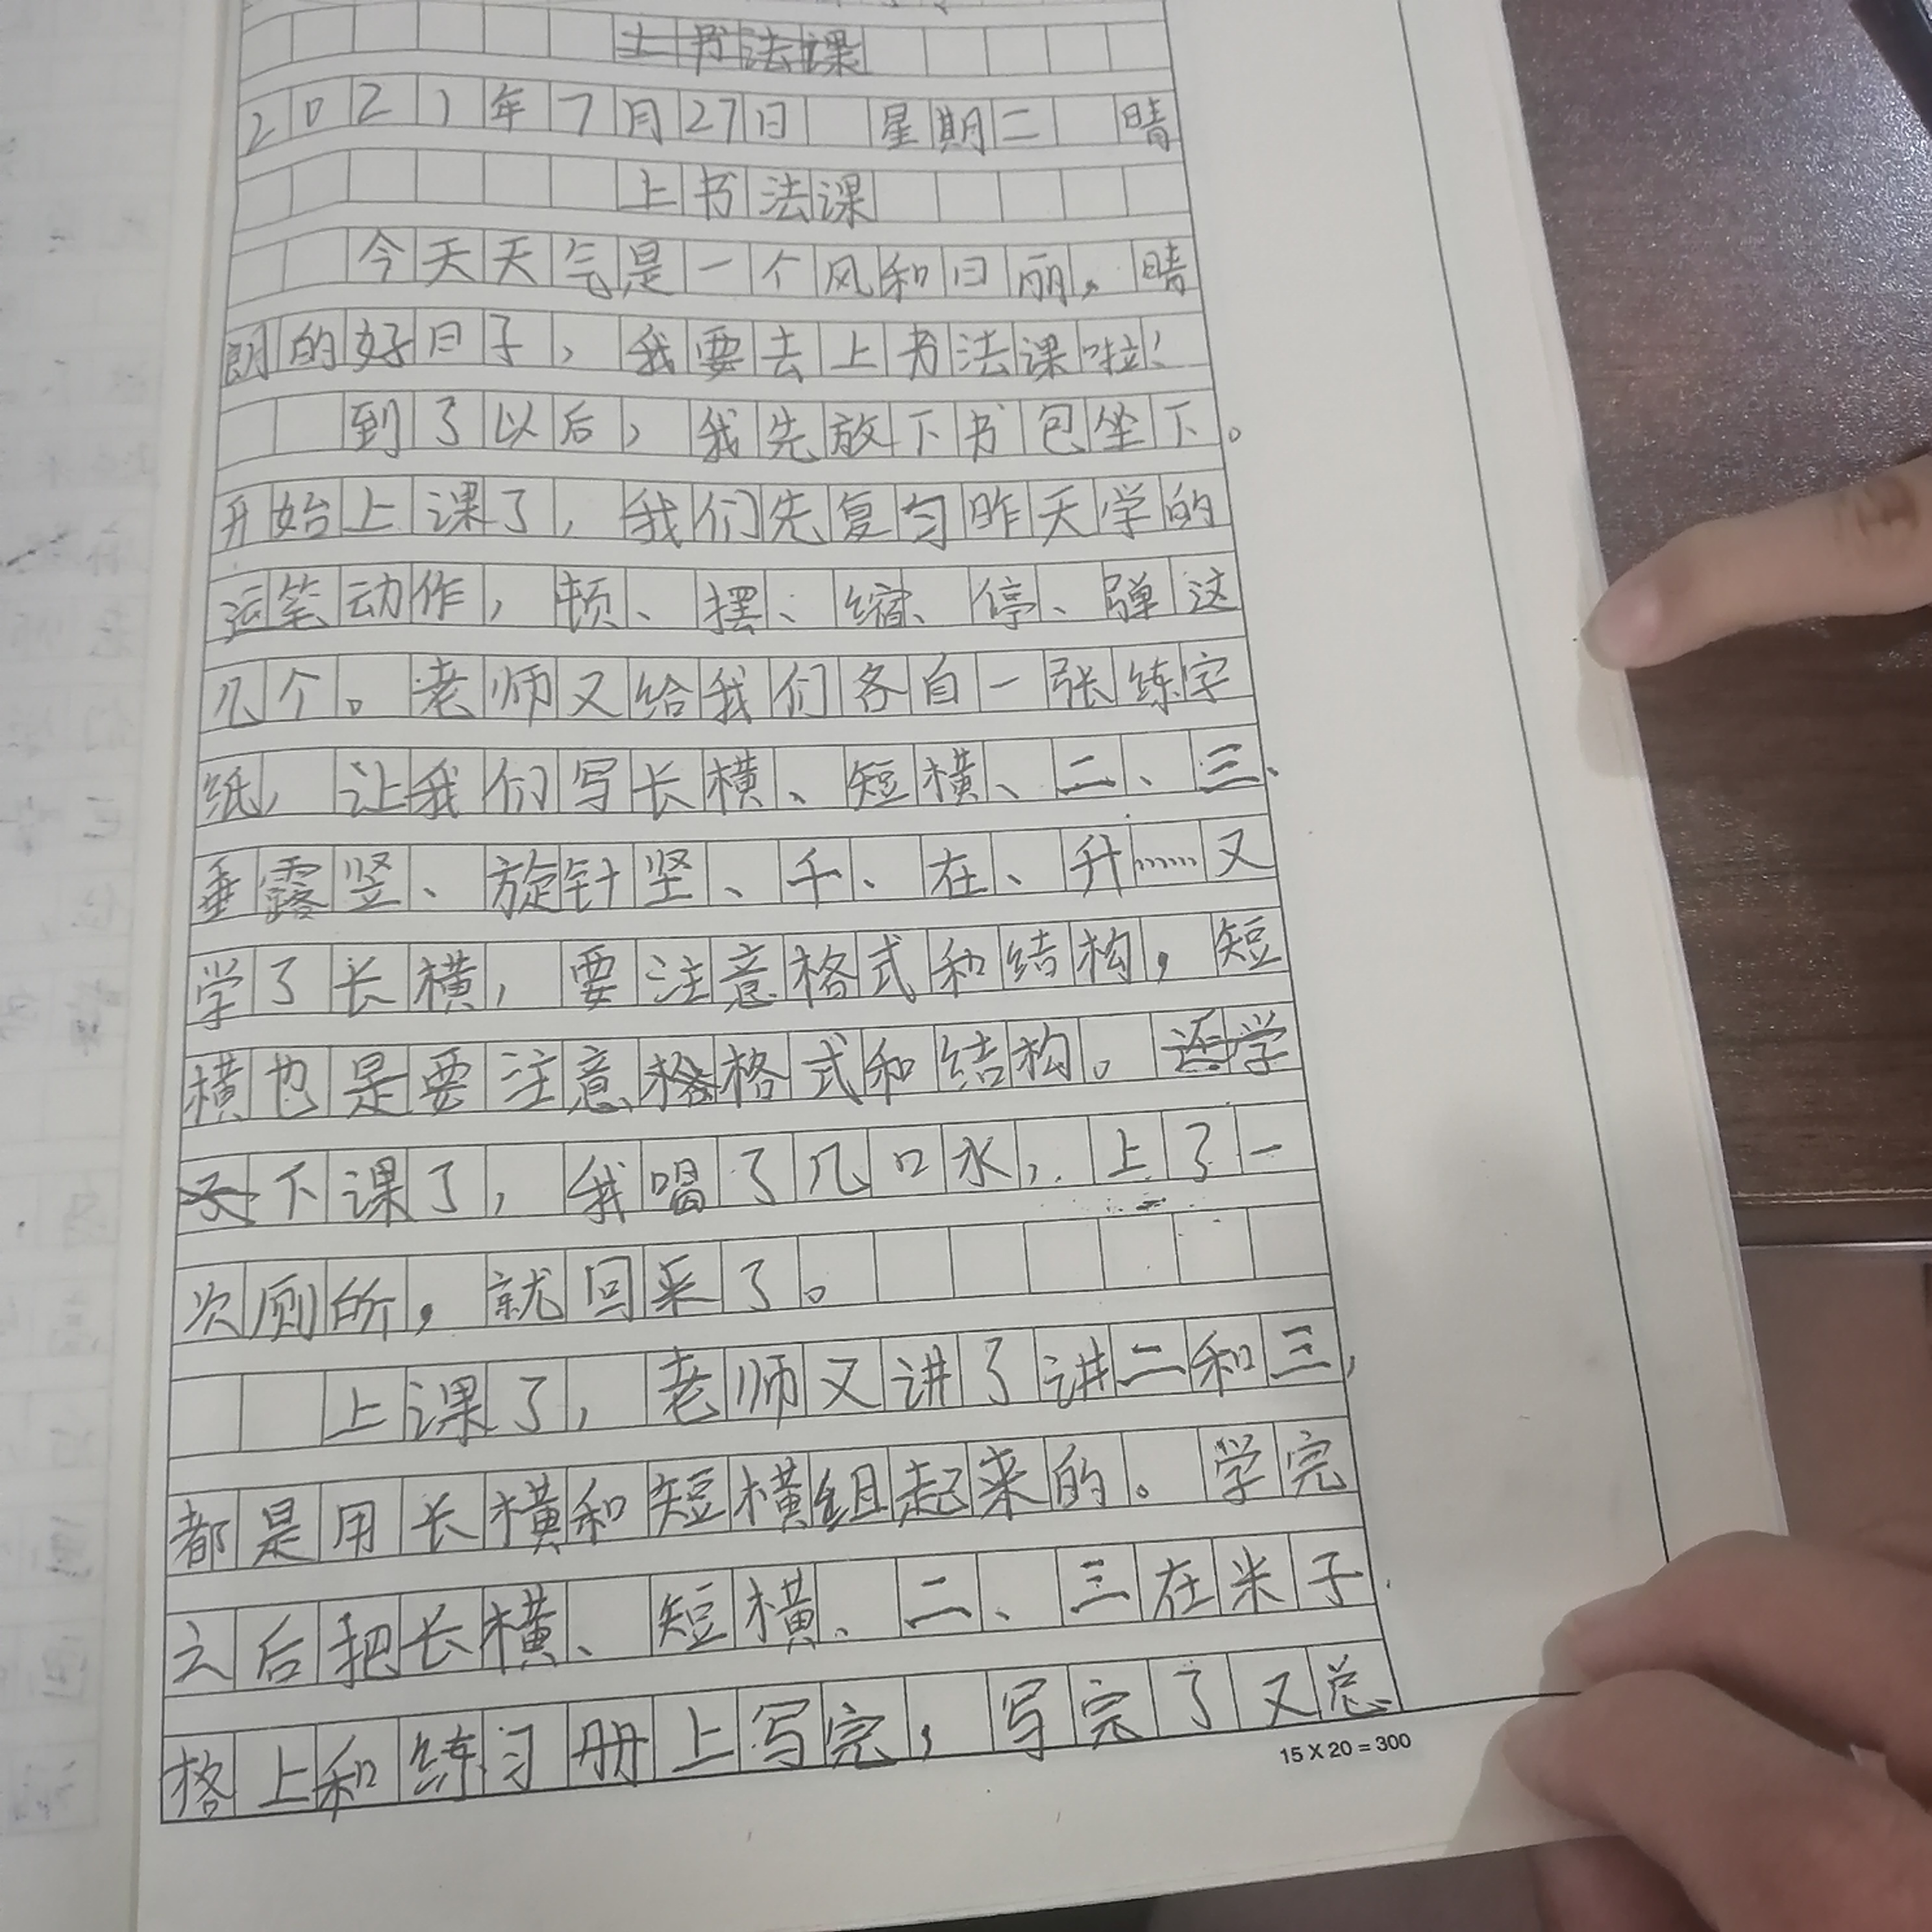 上书法课
2021年7月27日 星期二 晴
上书法课
今天天气是一个风和日丽,晴
朗的好日子,我要去上书法课啦!
到了以后,我先放下书包坐下。
开始上课了,我们先复习昨天学的
运笔动作,顿、摆、缩、停、弹这
几个。老师又给我们各自一张练字
纸,让我们写长横、短横、二、三、
垂露竖、旋针坚、千、在、升……又
学了长横,要注意格式和结构,短
横也是要注意格式和结构。还学
下课了,我喝了几口水,上了一
次厕所,就回来了。
上课了,老师又讲了讲二和三,
都是用长横和短横组起来的。学完
之后把长横、短横、二、三在米子
格上和练习册上写完,写完了又总
15 X 20 = 300